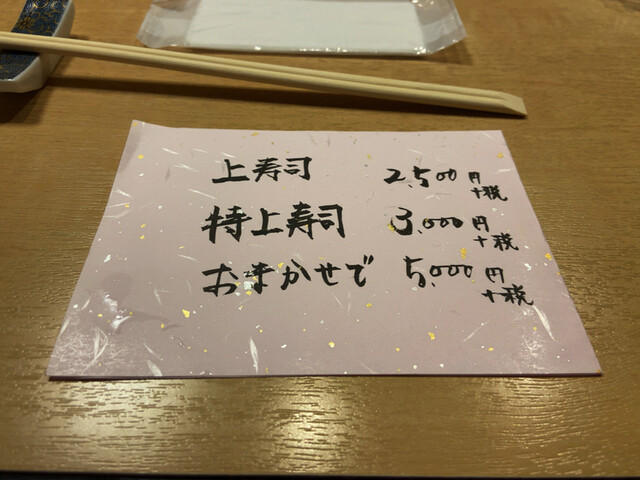 上寿司 2,500円+税
特上寿司 3,000円+税
おまかせで 5,000円+税